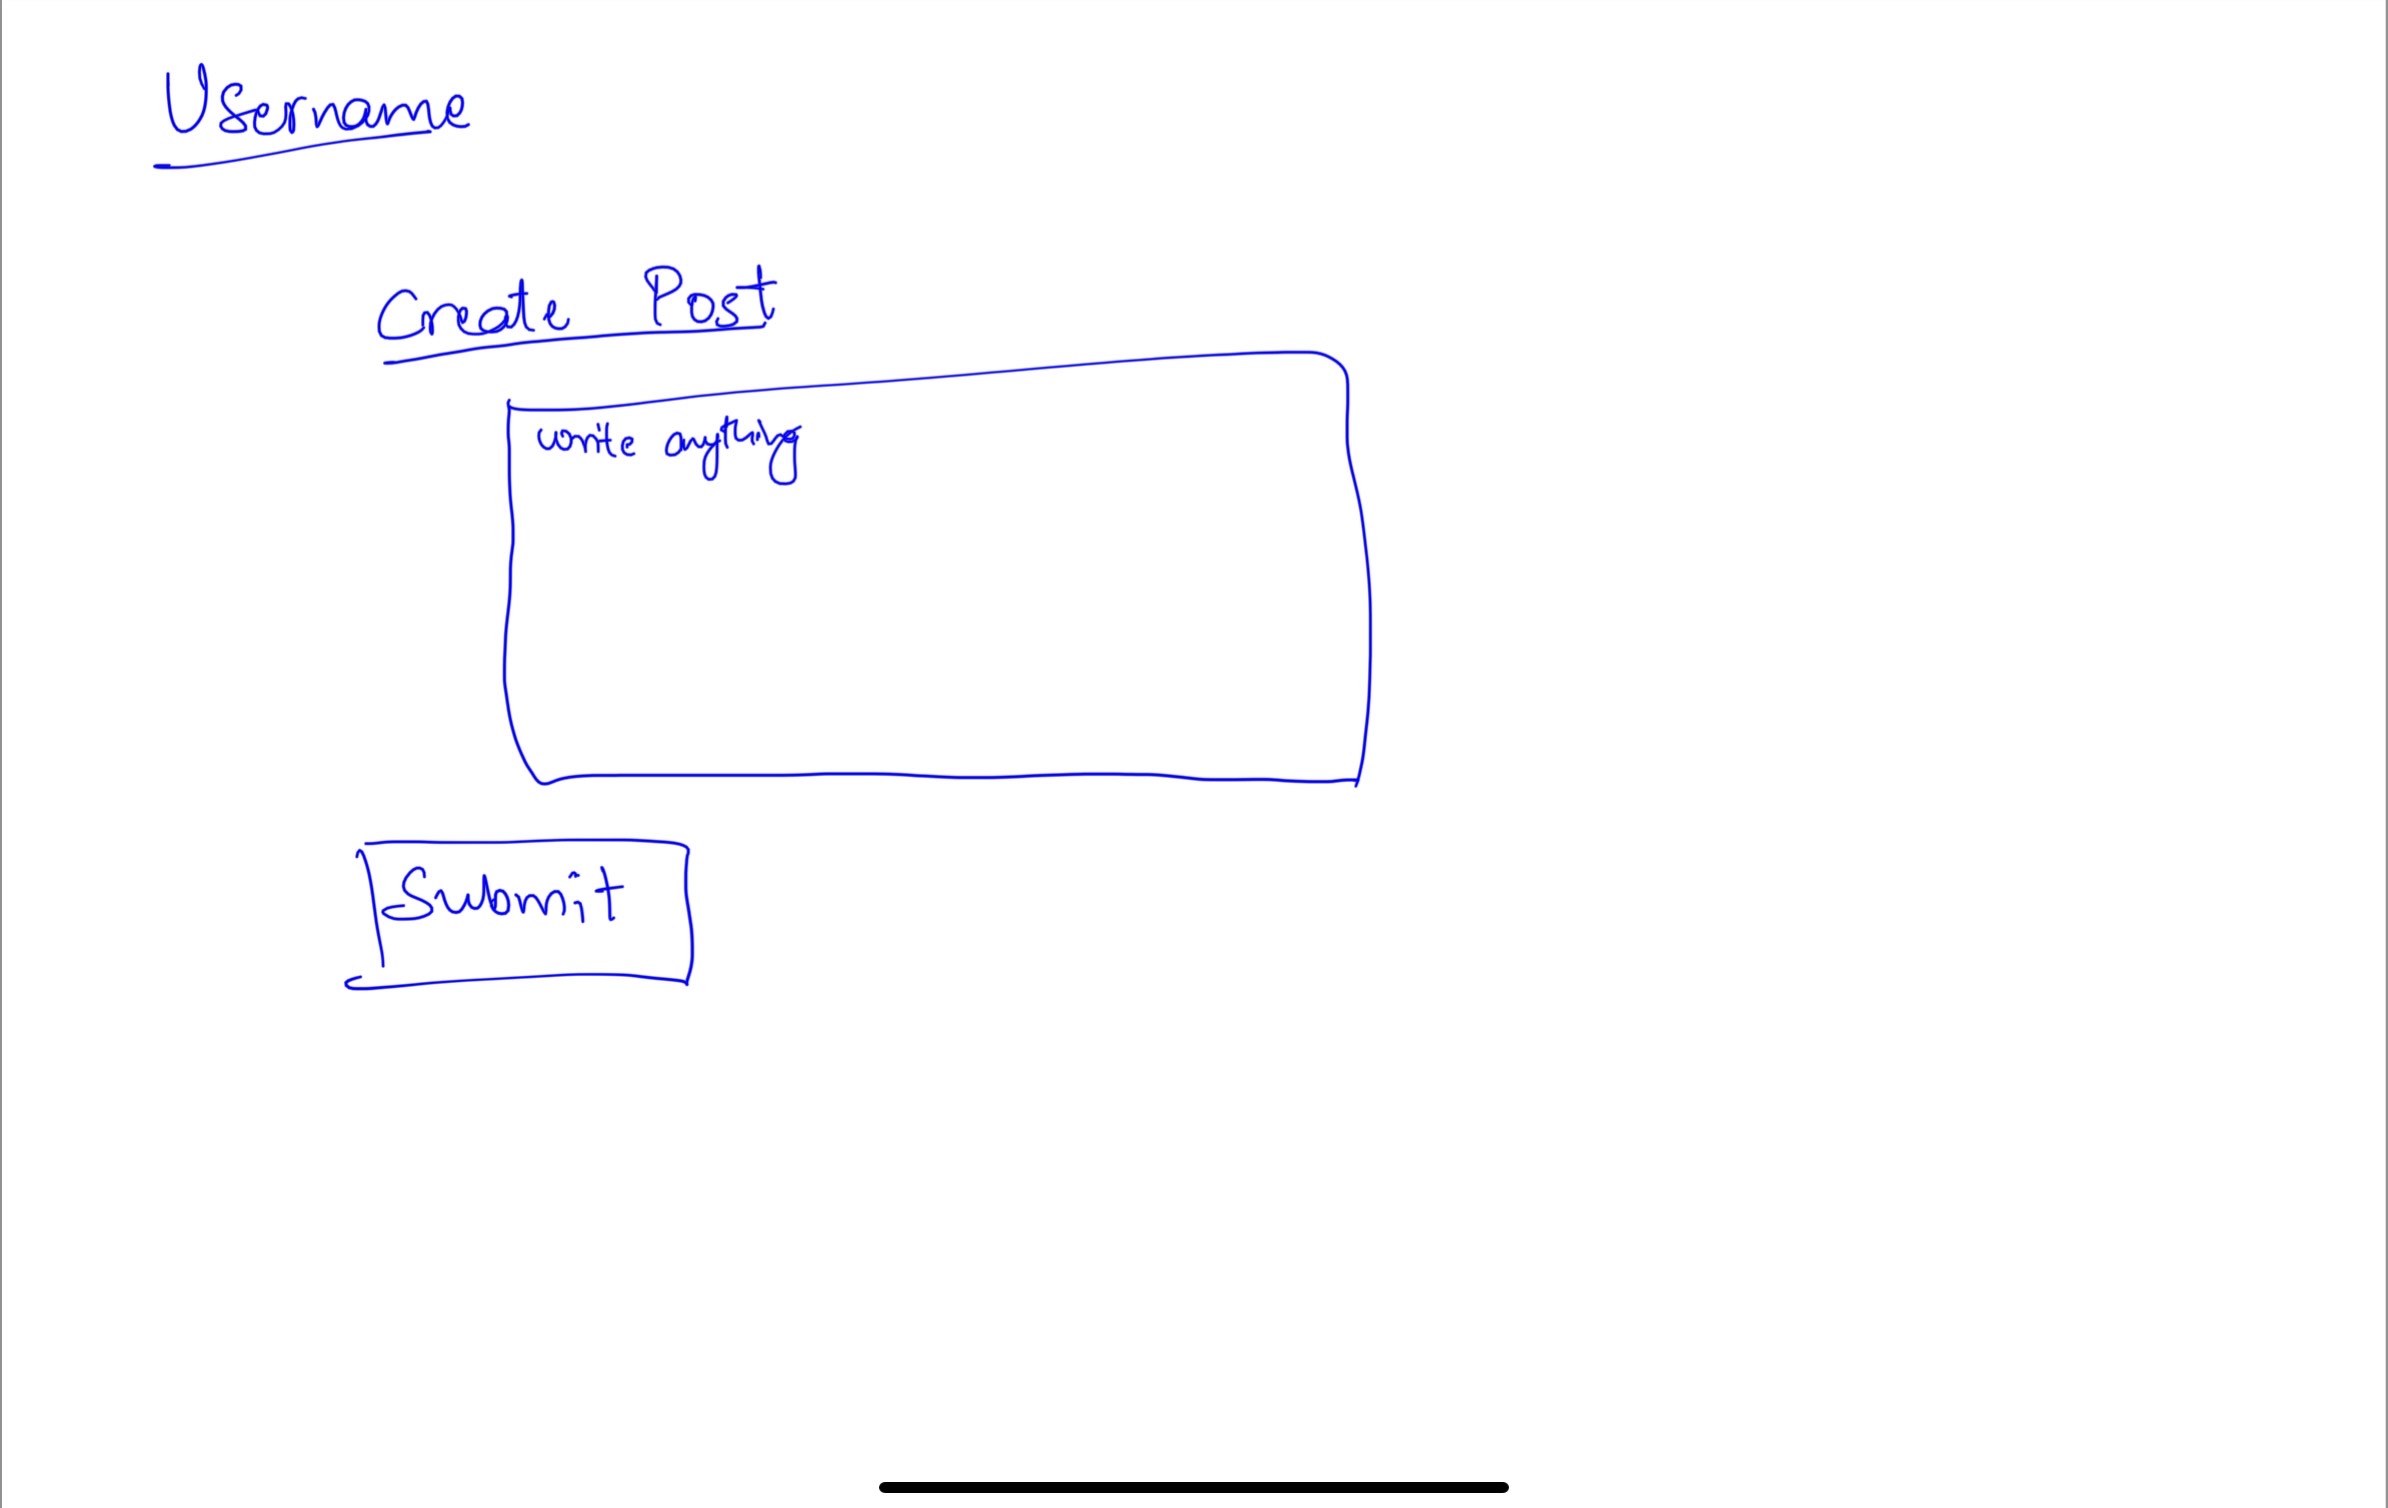 Username
Create Post
write anything
Submit